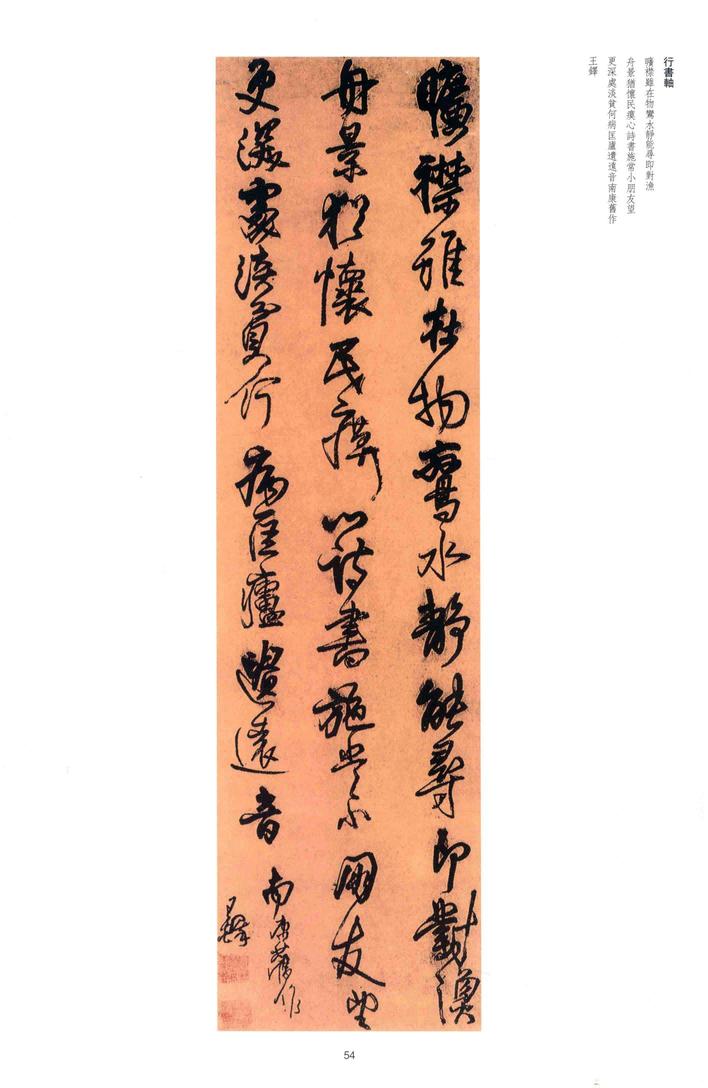 行書軸
曠襟雖在物水靜能尋即對漁
舟景猶懷民瘼心詩書施常小朋友望
更深處淡貧何病匡廬遺遠音南康舊作
王鐸
曠襟雖在物水靜能尋即對漁
舟景猶懷民瘼心詩書施朋友望
更深處淡貧何病匡廬遺遠音
南康舊作
王鐸
54